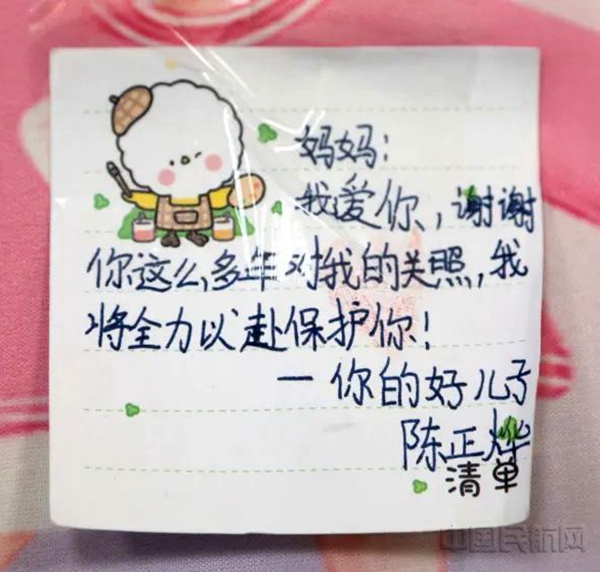 妈妈：
我爱你，谢谢
你这么多年对我的关照，我
将全力以赴保护你！
一你的好儿子
陈正烨
清单
中国民航网